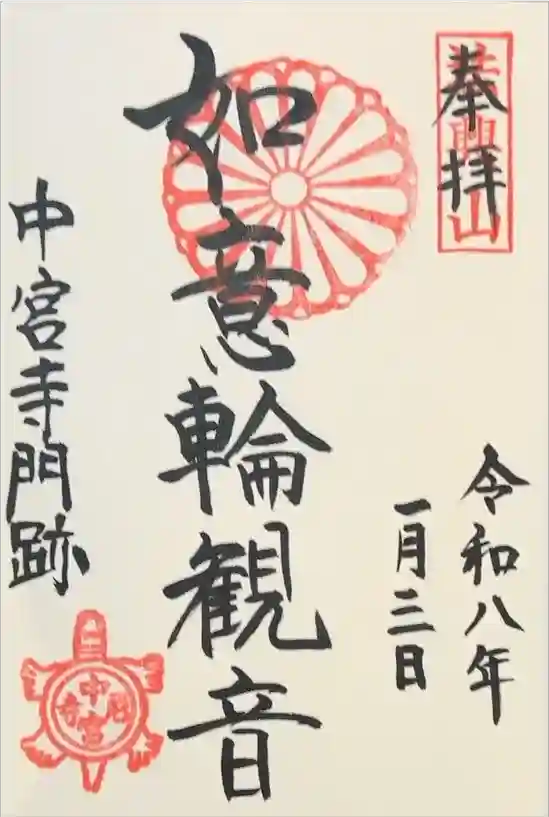 奉拝
法興山
令和八年
一月三日
如意輪観音
中宮寺門跡
中宮寺印